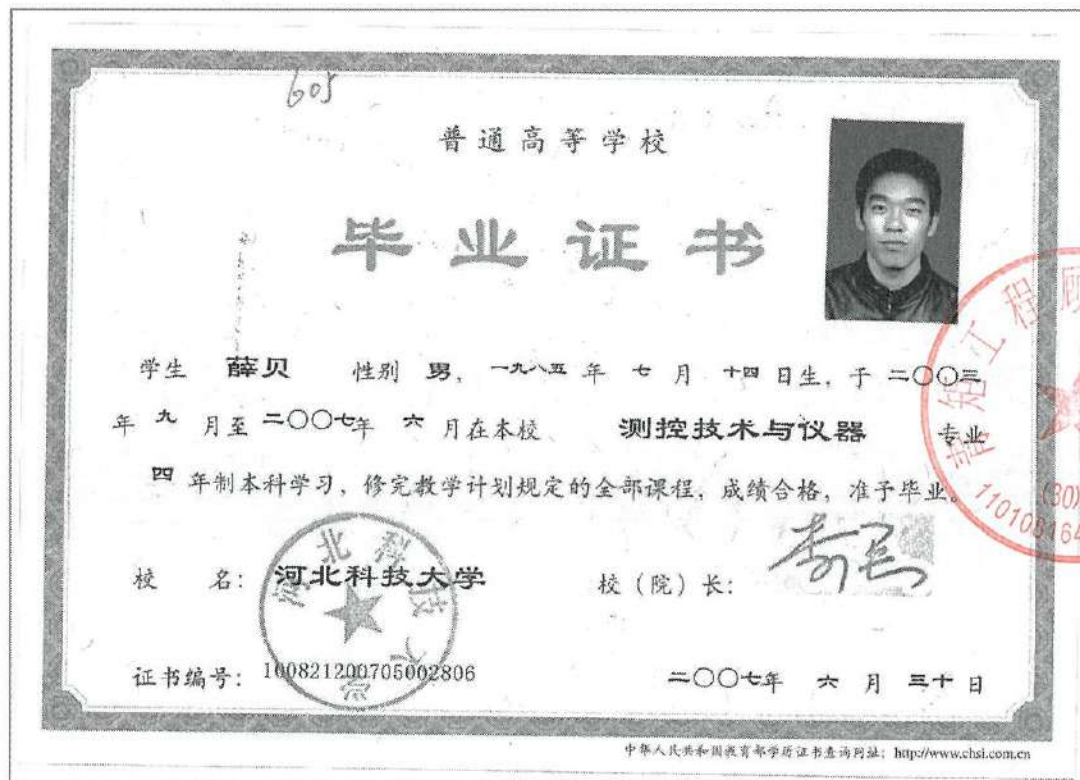 605
普通高等学校
毕业证书
学生 薛贝 性别 男，一九八五年 七 月 十四日生，于 二〇〇三
年 九 月至 二〇〇七年 六 月在本校 测控技术与仪器 专业
四 年制本科学习，修完教学计划规定的全部课程，成绩合格，准予毕业。
校 名：河北科技大学 校（院）长：
河北科技大学
证书编号：100821200705002806 二〇〇七年 六 月 三十日
工程顾
(30)
110108164
中华人民共和国教育部学历证书查询网址：http://www.chsi.com.cn